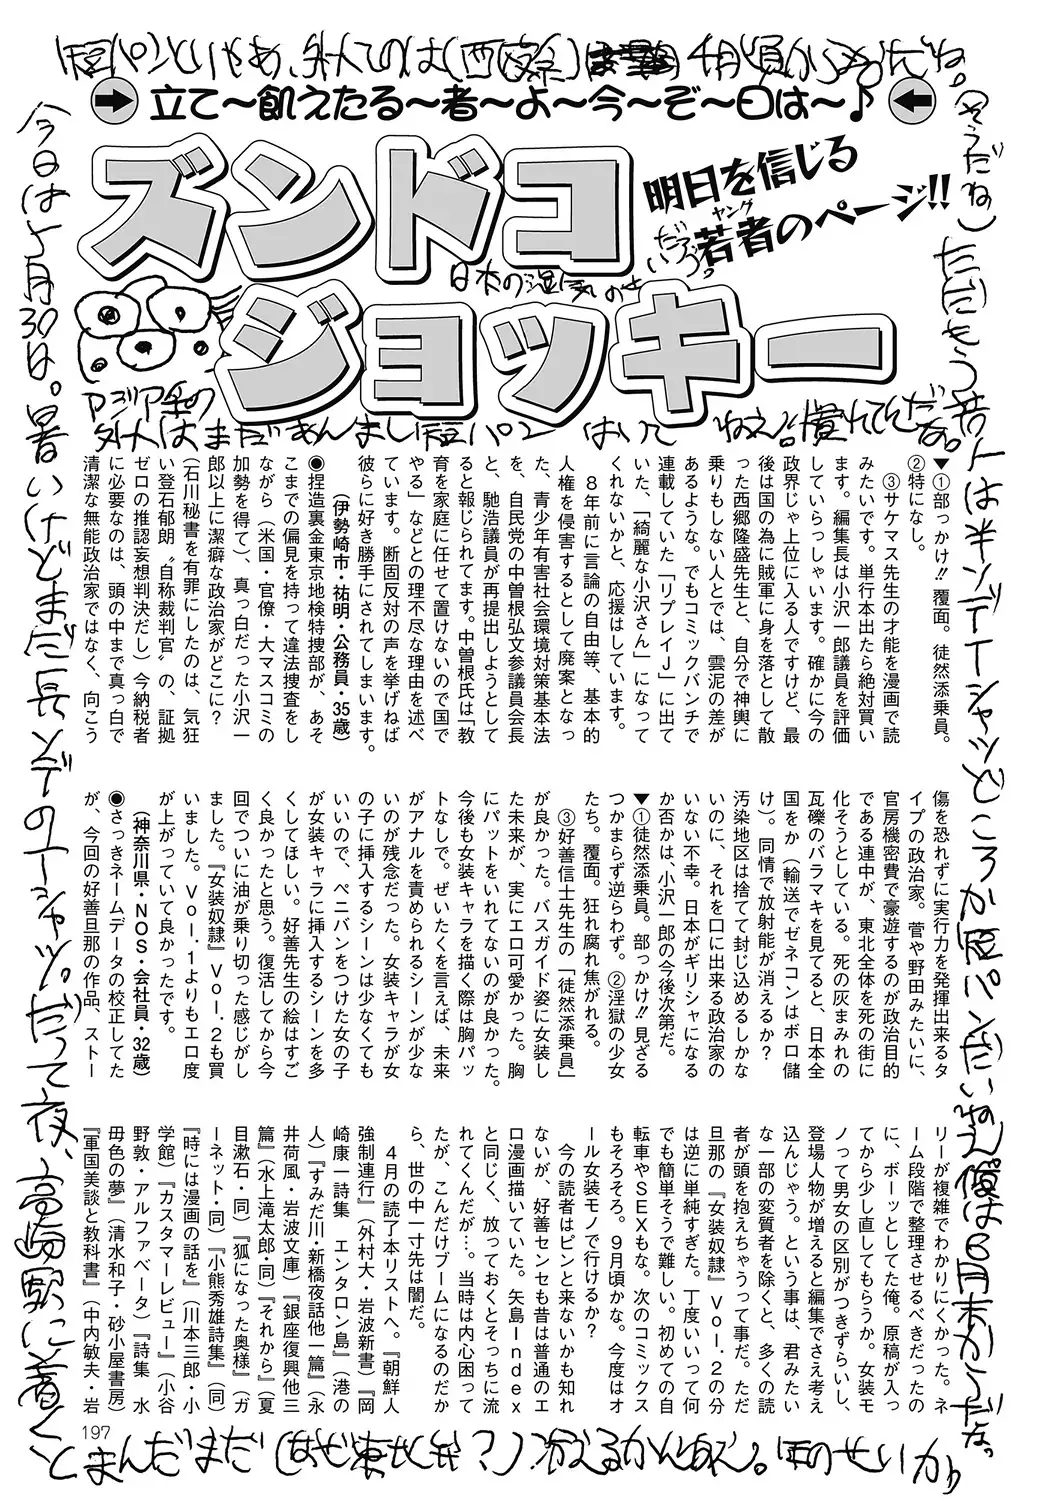 短パンといやあ、外人てのは(西欧系)
4月頃からめだね。
立て〜飢えたる〜者〜よ〜今〜ぞ〜日は〜♪
ズンドコ
ジョッキー
明日を信じる
若者のページ!!
ヤング
日本の湿気のせ
いだろう。
アジア系の
外人はまだあんまし短パン
はいて
ねえ。慣れてんだな。
今日は4月30日は。暑いけどまだ長ソデのTーシャツ。だって夜、高崎駅に着くと
まんだまだ(なぜ東北弁?)冷えるかんねえ。
(そうだね)ただもう
は半ソデTーシャツどころか短パンだいね。僕は日本かんでな。
▼①部っかけ!!覆面。徒然添乗員。
②特になし。
③サケマス先生の才能を漫画で読
みたいです。単行本出たら絶対買い
ます。編集長は小沢一郎議員を評価
していらっしゃいます。確かに今の
政界じゃ上位に入る人ですけど、最
後は国の為に賊軍に身を落として散
った西郷隆盛先生と、自分で神輿に
乗りもしない人とでは、雲泥の差が
あるような。でもコミックバンチで
連載していた「リプレイJ」に出て
いた、「綺麗な小沢さん」になって
くれないかと、応援はしています。
８年前に言論の自由等、基本的
人権を侵害するとして廃案となっ
た、青少年有害社会環境対策基本法
を、自民党の中曽根弘文参議員会長
と、馳浩議員が再提出しようとして
ると報じられてます。中曽根氏は「教
育を家庭に任せて置けないので国で
やる」などとの理不尽な理由を述べ
ています。断固反対の声を挙げねば
彼らに好き勝手にされてしまいます。
(伊勢崎市・祐明・公務員・35歳)
◉捏造裏金東京地検特捜部が、あそ
こまでの偏見を持って違法捜査をし
ながら（米国・官僚・大マスコミの
加勢を得て）、真っ白だった小沢一
郎以上に潔癖な政治家がどこに?
（石川秘書を有罪にしたのは、気狂
い登石郁朗〝自称裁判官〟の、証拠
ゼロの推認妄想判決だし）今納税者
に必要なのは、頭の中まで真っ白で
清潔な無能政治家ではなく、向こう
傷を恐れずに実行力を発揮出来るタ
イプの政治家。菅や野田みたいに、
官房機密費で豪遊するのが政治目的
である連中が、東北全体を死の街に
化そうとしている。死の灰まみれの
瓦礫のバラマキを見てると、日本全
国をか（輸送でゼネコンはボロ儲
け）。同情で放射能が消えるか?
汚染地区は捨てて封じ込めるしかな
いのに、それを口に出来る政治家の
いない不幸。日本がギリシャになる
か否かは、小沢一郎の今後次第だ。
▼①徒然添乗員。部っかけ!!見ざる
つかまらず逆らわず。②淫獄の少女
たち。覆面。狂れ腐れ焦がれる。
③好善信士先生の「徒然添乗員」
が良かった。バスガイド姿に女装し
た未来が、実にエロ可愛かった。胸
にパットをいれてないのが良かった。
今後も女装キャラを描く際は胸パッ
トなしで。ぜいたくを言えば、未来
がアナルを責められるシーンが少な
いのが残念だった。女装キャラが女
の子に挿入するシーンは少なくても
いいので、ペニバンをつけた女の子
が女装キャラに挿入するシーンを多
くしてほしい。好善先生の絵はすご
く良かったと思う。復活してから今
回でついに油が乗り切った感じがし
ました。『女装奴隷』Vol.2も買
いました。Vol.1よりもエロ度
が上がっていて良かったです。
(神奈川県・NOS・会社員・32歳)
◉さっきネームデータの校正してた
が、今回の好善旦那の作品、ストー
リーが複雑でわかりにくかった。ネ
ーム段階で整理させるべきだったの
に、ボーッとしてた俺。原稿が入っ
てから少し直してもらうか。女装モ
ノって男女の区別がつきずらいし、
登場人物が増えると編集でさえ考え
込んじゃう。という事は、君みたい
な一部の変質者を除くと、多くの読
者が頭を抱えちゃうって事だ。ただ
旦那の『女装奴隷』Vol.2の分
は逆に単純すぎた。丁度いいって何
でも簡単そうで難しい。初めての自
転車やSEXもな。次のコミックス
もそろそろ。9月頃かな。今度はオ
ール女装モノで行けるか?
今の読者はピンと来ないかも知れ
ないが、好善センセも昔は普通のエ
ロ漫画描いていた。矢島Index
と同じく、放っておくとそっちに流
れてくんだが…。当時は内心困って
たが、こんだけブームになるのだか
ら、世の中一寸先は闇だ。
４月の読了本リストへ。『朝鮮人
強制連行』（外村大・岩波新書）『岡
崎康一詩集　エンタロン島』（港の
人）『すみだ川・新橋夜話他一篇』（永
井荷風・岩波文庫）『銀座復興他三
篇』（水上滝太郎・同）『それから』（夏
目漱石・同）『狐になった奥様』（ガ
ーネット・同）『小熊秀雄詩集』（同）
『時には漫画の話を』（川本三郎・小
学館）『カスタマーレビュー』（小谷
野敦・アルファベータ）『詩集　水
母色の夢』（清水和子・砂小屋書房）
『軍国美談と教科書』（中内敏夫・岩
197